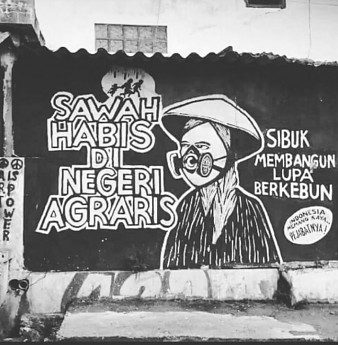 SAWAH
HABIS
DI
NEGERI
AGRARIS
SIBUK
MEMBANGUN
LUPA
BERKEBUN
INDONESIA
MEMANG KAYA
PEJABATNYA!
ART
IS POWER